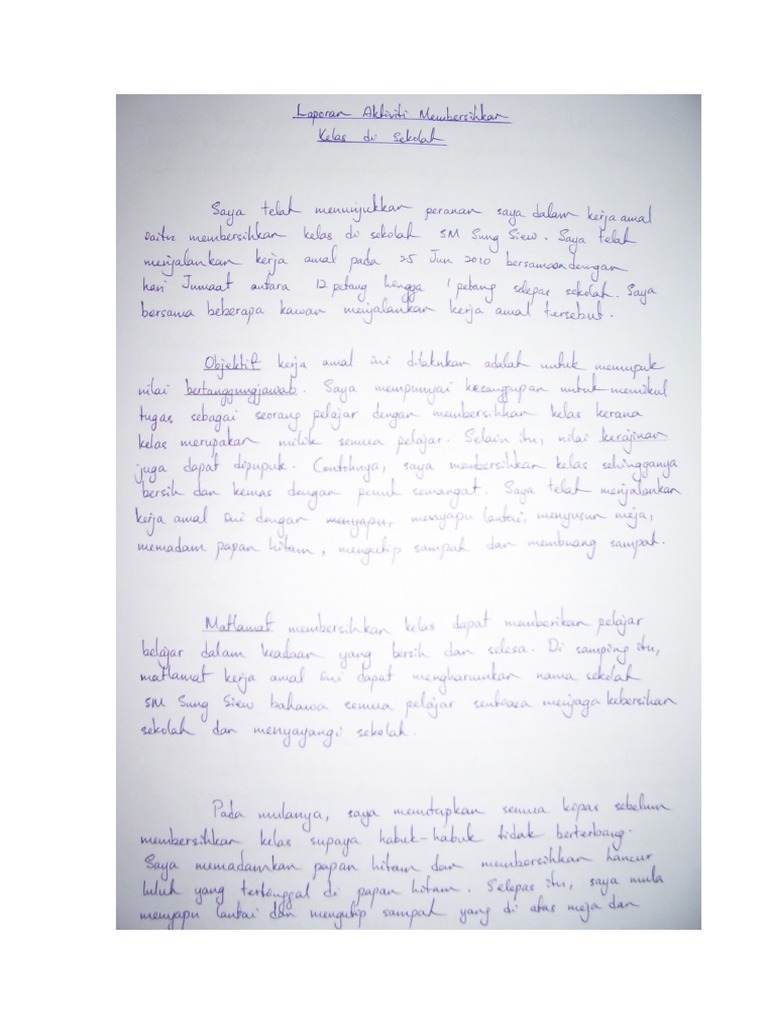 Laporan Aktiviti Membersihkan
Kelas di Sekolah
Saya telah menunjukkan peranan saya dalam kerja amal
iaitu membersihkan kelas di sekolah SM Sung Siew. Saya telah
menjalankan kerja amal pada 25 Jun 2010 bersamaan dengan
hari Jumaat antara 12 petang hengga 1 petang selepas sekolah. Saya
bersama beberapa kawan menjalankan kerja amal tersebut.
Objektif kerja amal ini dilakukan adalah untuk memupuk
nilai bertanggungjawab. Saya mempunyai kesanggupan untuk memikul
tugas sebagai seorang pelajar dengan membersihkan kelas kerana
kelas merupakan milik semua pelajar. Selain itu, nilai kerajinan
juga dapat dipupuk. Contohnya, saya membersihkan kelas sehingganya
bersih dan kemas dengan penuh semangat. Saya telah menjalankan
kerja amal ini dengan menyapu, menyapu lantai, menyusun meja,
memadam papan hitam, mengutip sampah dan membuang sampah.
Matlamat membersihkan kelas dapat memberikan pelajar
belajar dalam keadaan yang bersih dan selesa. Di samping itu,
matlamat kerja amal ini dapat mengharumkan nama sekolah
SM Sung Siew bahawa semua pelajar sentiasa menjaga kebersihan
sekolah dan menyayangi sekolah.
Pada mulanya, saya menutupkan semua kipas sebelum
membersihkan kelas supaya habuk-habuk tidak berterbang.
Saya memadamkan papan hitam dan membersihkan hancur
luluh yang tertinggal di papan hitam. Selepas itu, saya mula
menyapu lantai dan mengutip sampah yang di atas meja dan